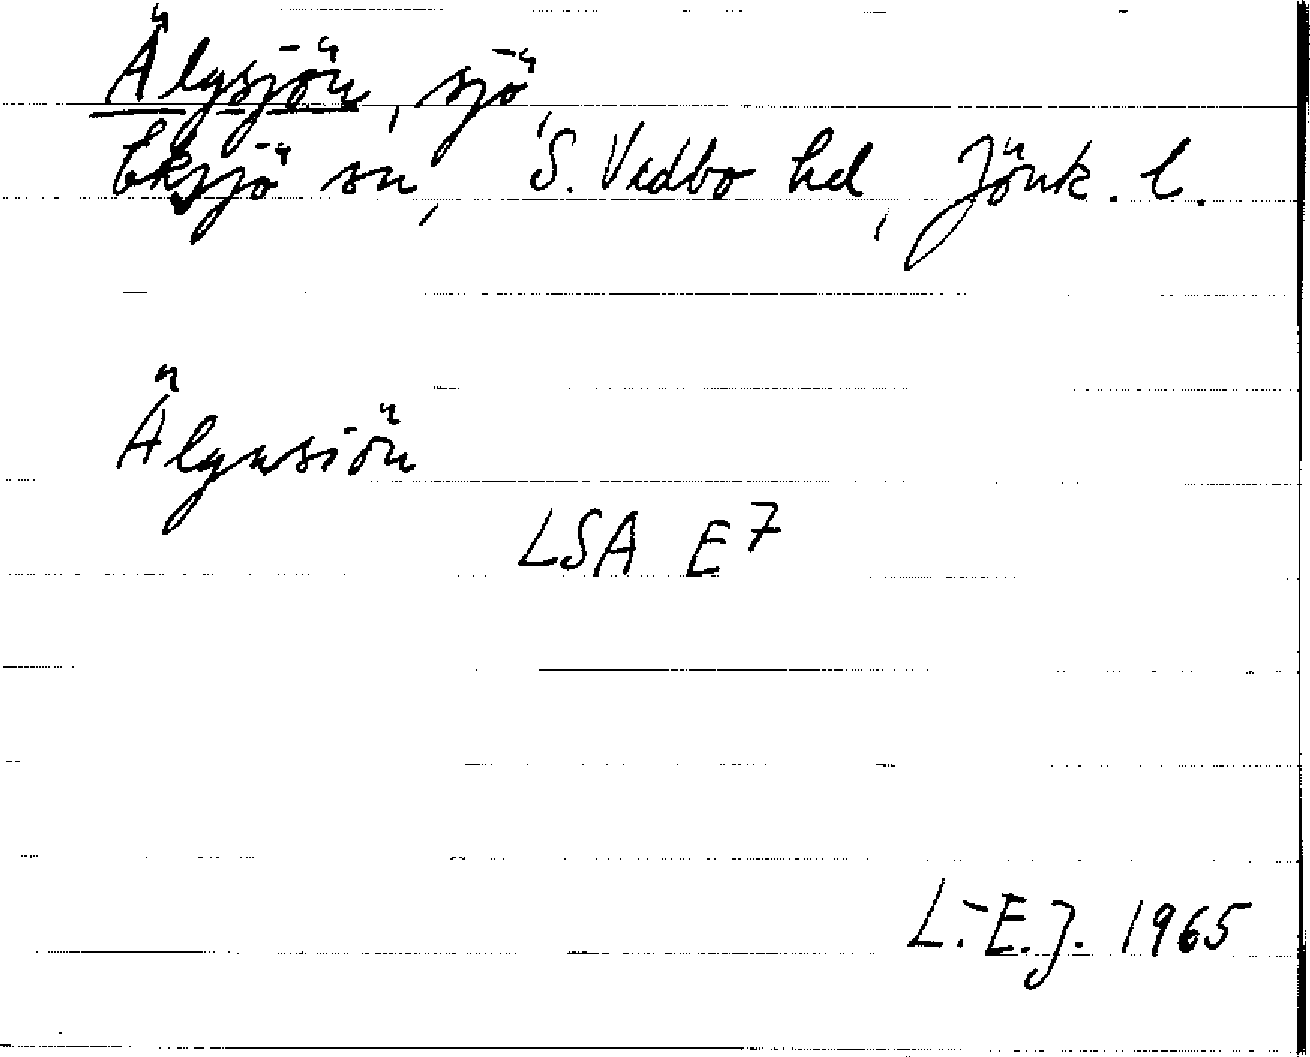 Älgsjön, sjö,
Eksjö sn, S. Vedbo hd, Jönk. l.
Älgasiön
LSA E7
L.-E.J. 1965